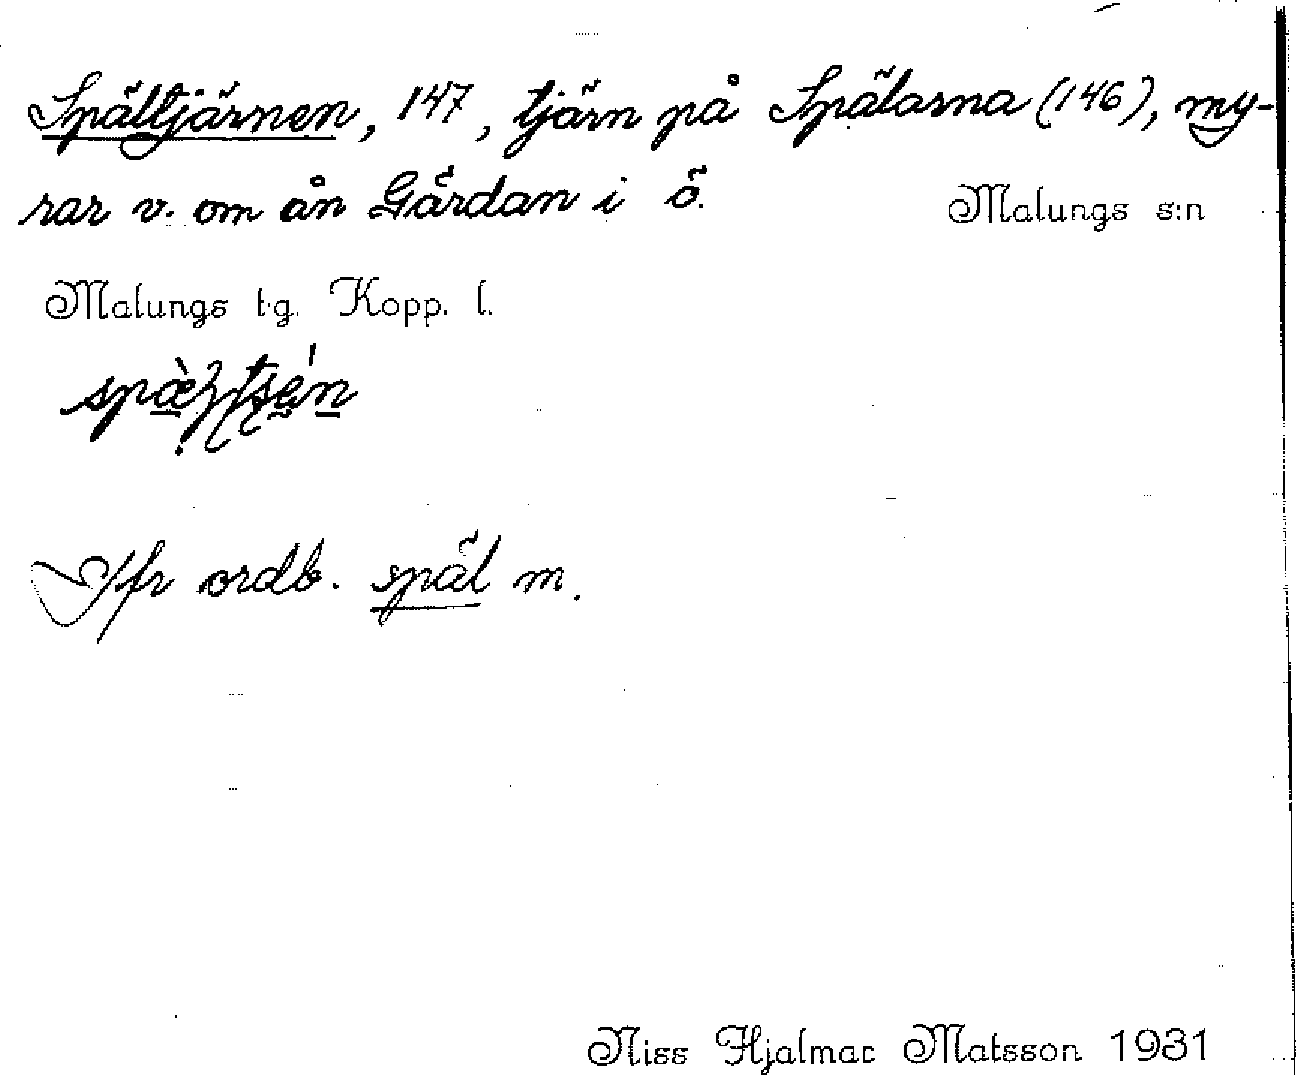 Spältjärnen, 147, tjärn på Spälarna (146), my-
rar v. om ån Gärdan i ö. Malungs s:n
Malungs tg. Kopp. l.
Jfr ordb. späl m.
Niss Hjalmar Matsson 1931